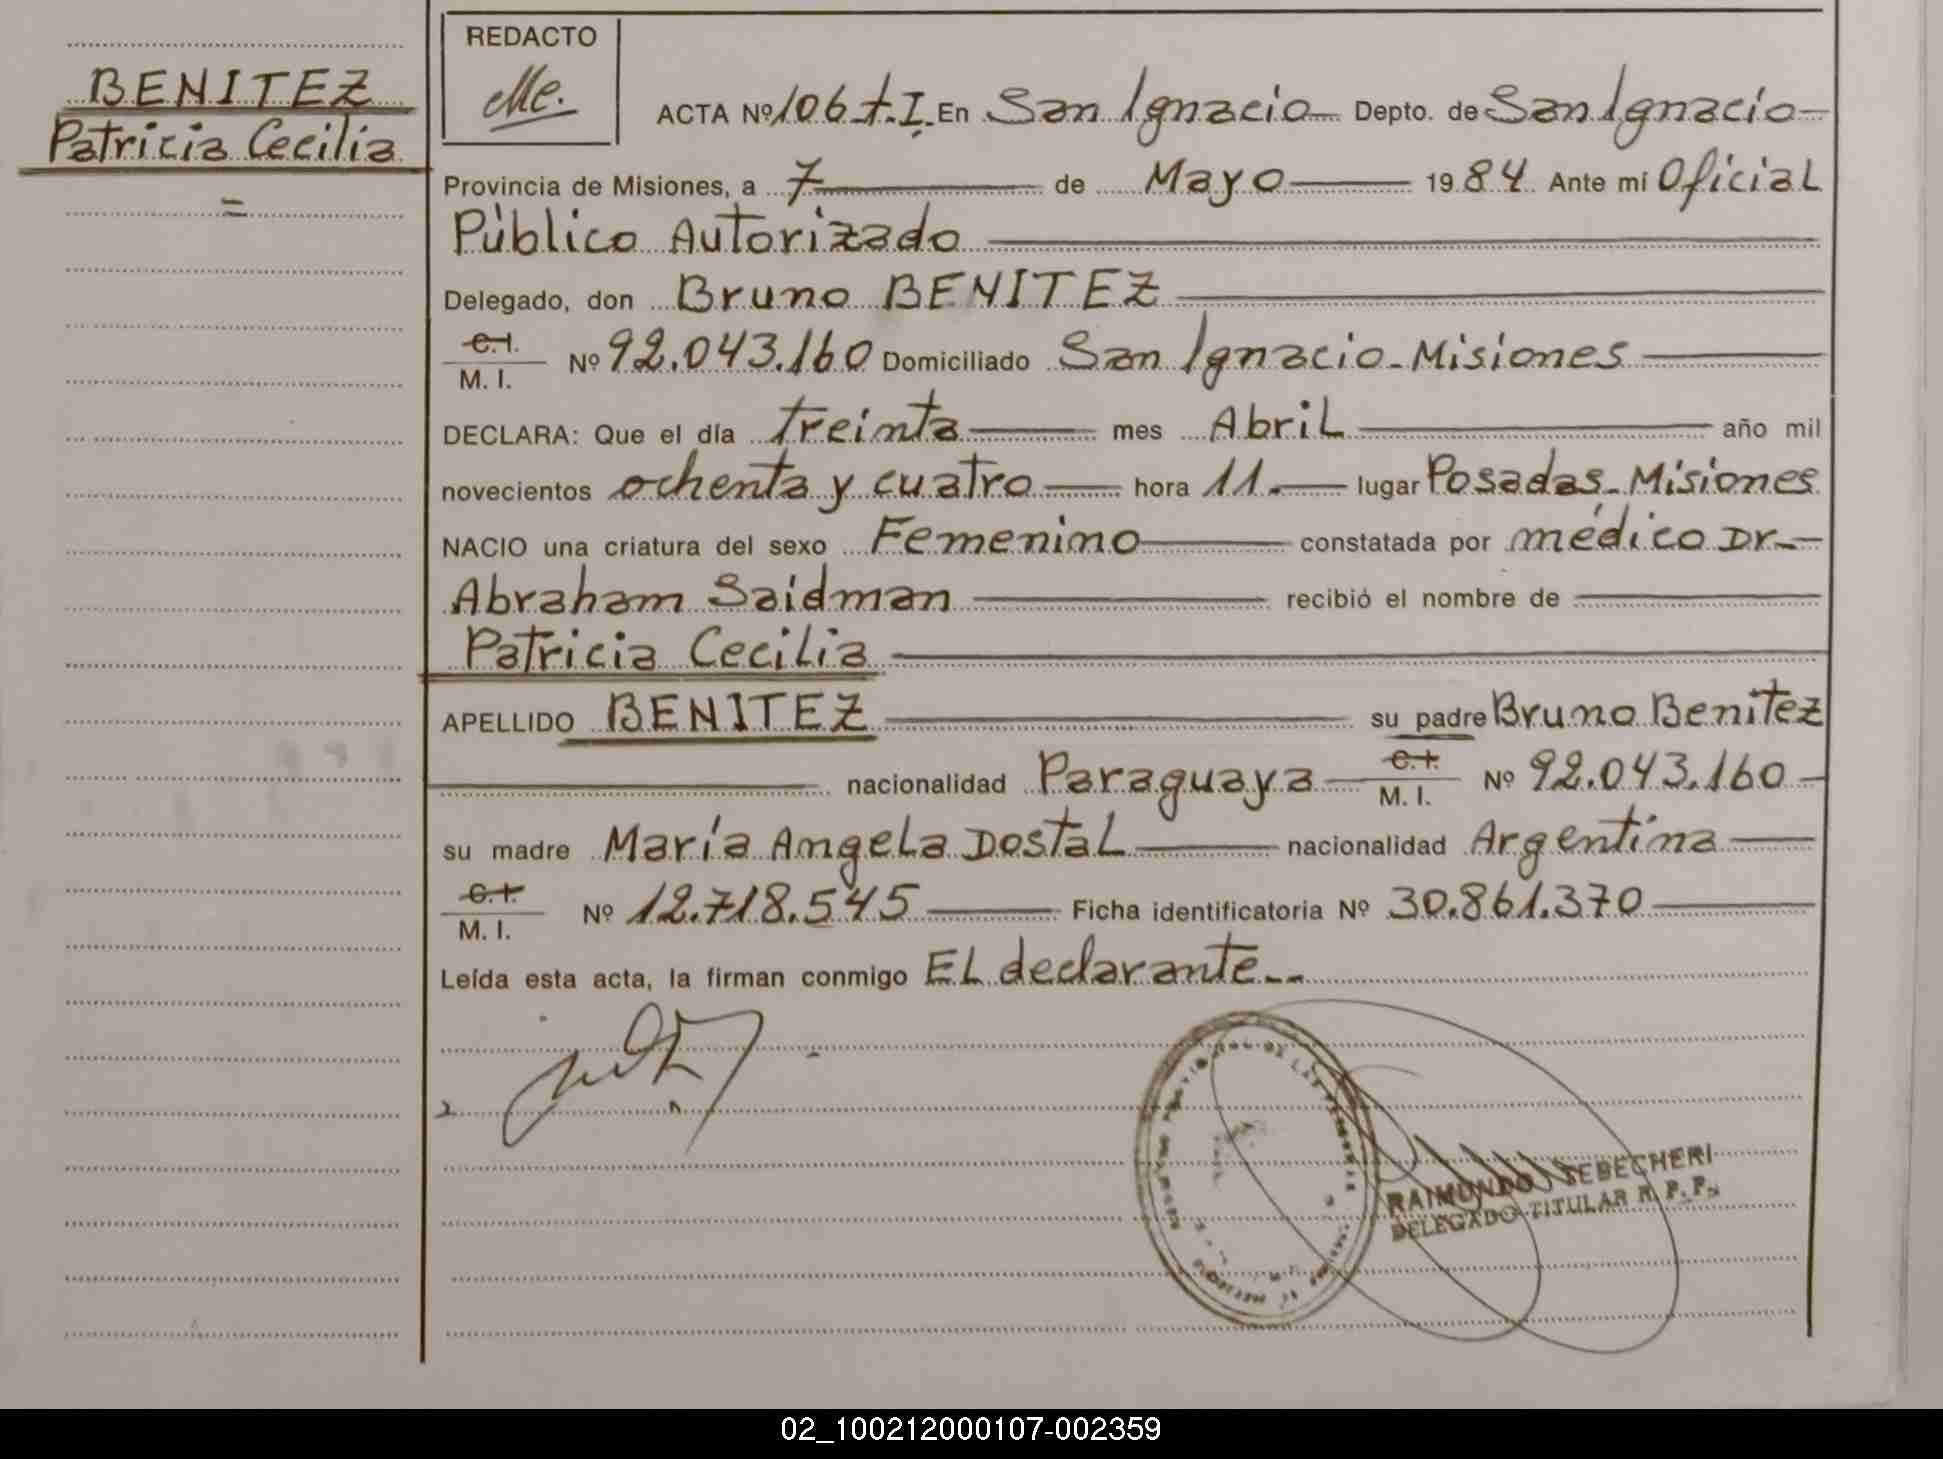 BENITEZ
Patricia Cecilia
=
REDACTO
Me.
ACTA Nº 106 t.I. En San Ignacio Depto. de San Ignacio
Provincia de Misiones, a 7 de Mayo 1984 Ante mí Oficial
Público Autorizado
Delegado, don Bruno BENITEZ
C.I.
M. I. Nº 92.043.160 Domiciliado San Ignacio - Misiones
DECLARA: Que el día treinta mes Abril año mil
novecientos ochenta y cuatro hora 11. lugar Posadas - Misiones
NACIO una criatura del sexo Femenino constatada por médico Dr.
Abraham Saidman recibió el nombre de
Patricia Cecilia
APELLIDO BENITEZ su padre Bruno Benitez
nacionalidad Paraguaya C.I. M. I. Nº 92.043.160
su madre María Angela Dostal nacionalidad Argentina
C.I.
M. I. Nº 12.718.545 Ficha identificatoria Nº 30.861.370
Leída esta acta, la firman conmigo El declarante--
RAIMUNDO TEBECHERI
DELEGADO TITULAR R. P. P.
02_100212000107-002359